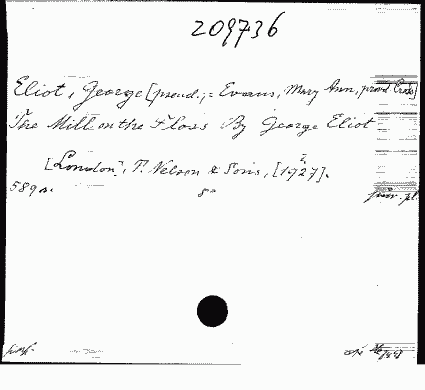 209736
Eliot, George [pseud.; = Evans, Mary Ann,
The Mill on the Floss By George Eliot
[London], T. Nelson & Sons, [1927].
589 s. 8°